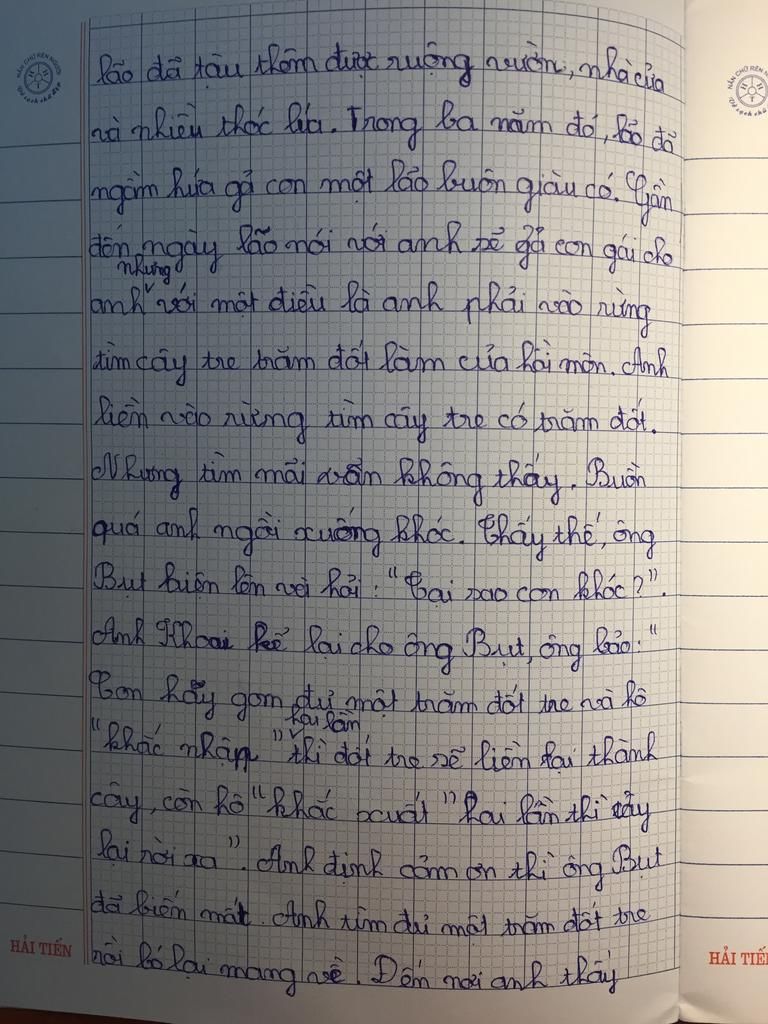 lão đã tậu thêm được ruộng vườn, nhà cửa
và nhiều thóc lúa. Trong ba năm đó, lão đã
ngầm hứa gả con một lão buôn giàu có. Gần
đến ngày lão nói với anh sẽ gả con gái cho
nhưng
anh với một điều là anh phải vào rừng
tìm cây tre trăm đốt làm của hồi môn. Anh
liền vào rừng tìm cây tre có trăm đốt.
Nhưng tìm mãi vẫn không thấy. Buồn
quá anh ngồi xuống khóc. Thấy thế, ông
Bụt hiện lên và hỏi: "Tại sao con khóc?".
Anh Khoai kể lại cho ông Bụt, ông bảo: "
Con hãy gom đủ một trăm đốt tre và hô
hai lần
"khắc nhập" thì đốt tre sẽ liền lại thành
cây, còn hô "khắc xuất" hai lần thì cây
lại rời ra". Anh định cảm ơn thì ông Bụt
đã biến mất. Anh tìm đủ một trăm đốt tre
rồi bó lại mang về. Đến nơi anh thấy
HẢI TIẾN
HẢI TIẾ
NẮN CHỮ RÈN NGƯỜI
Vở sạch chữ đẹp